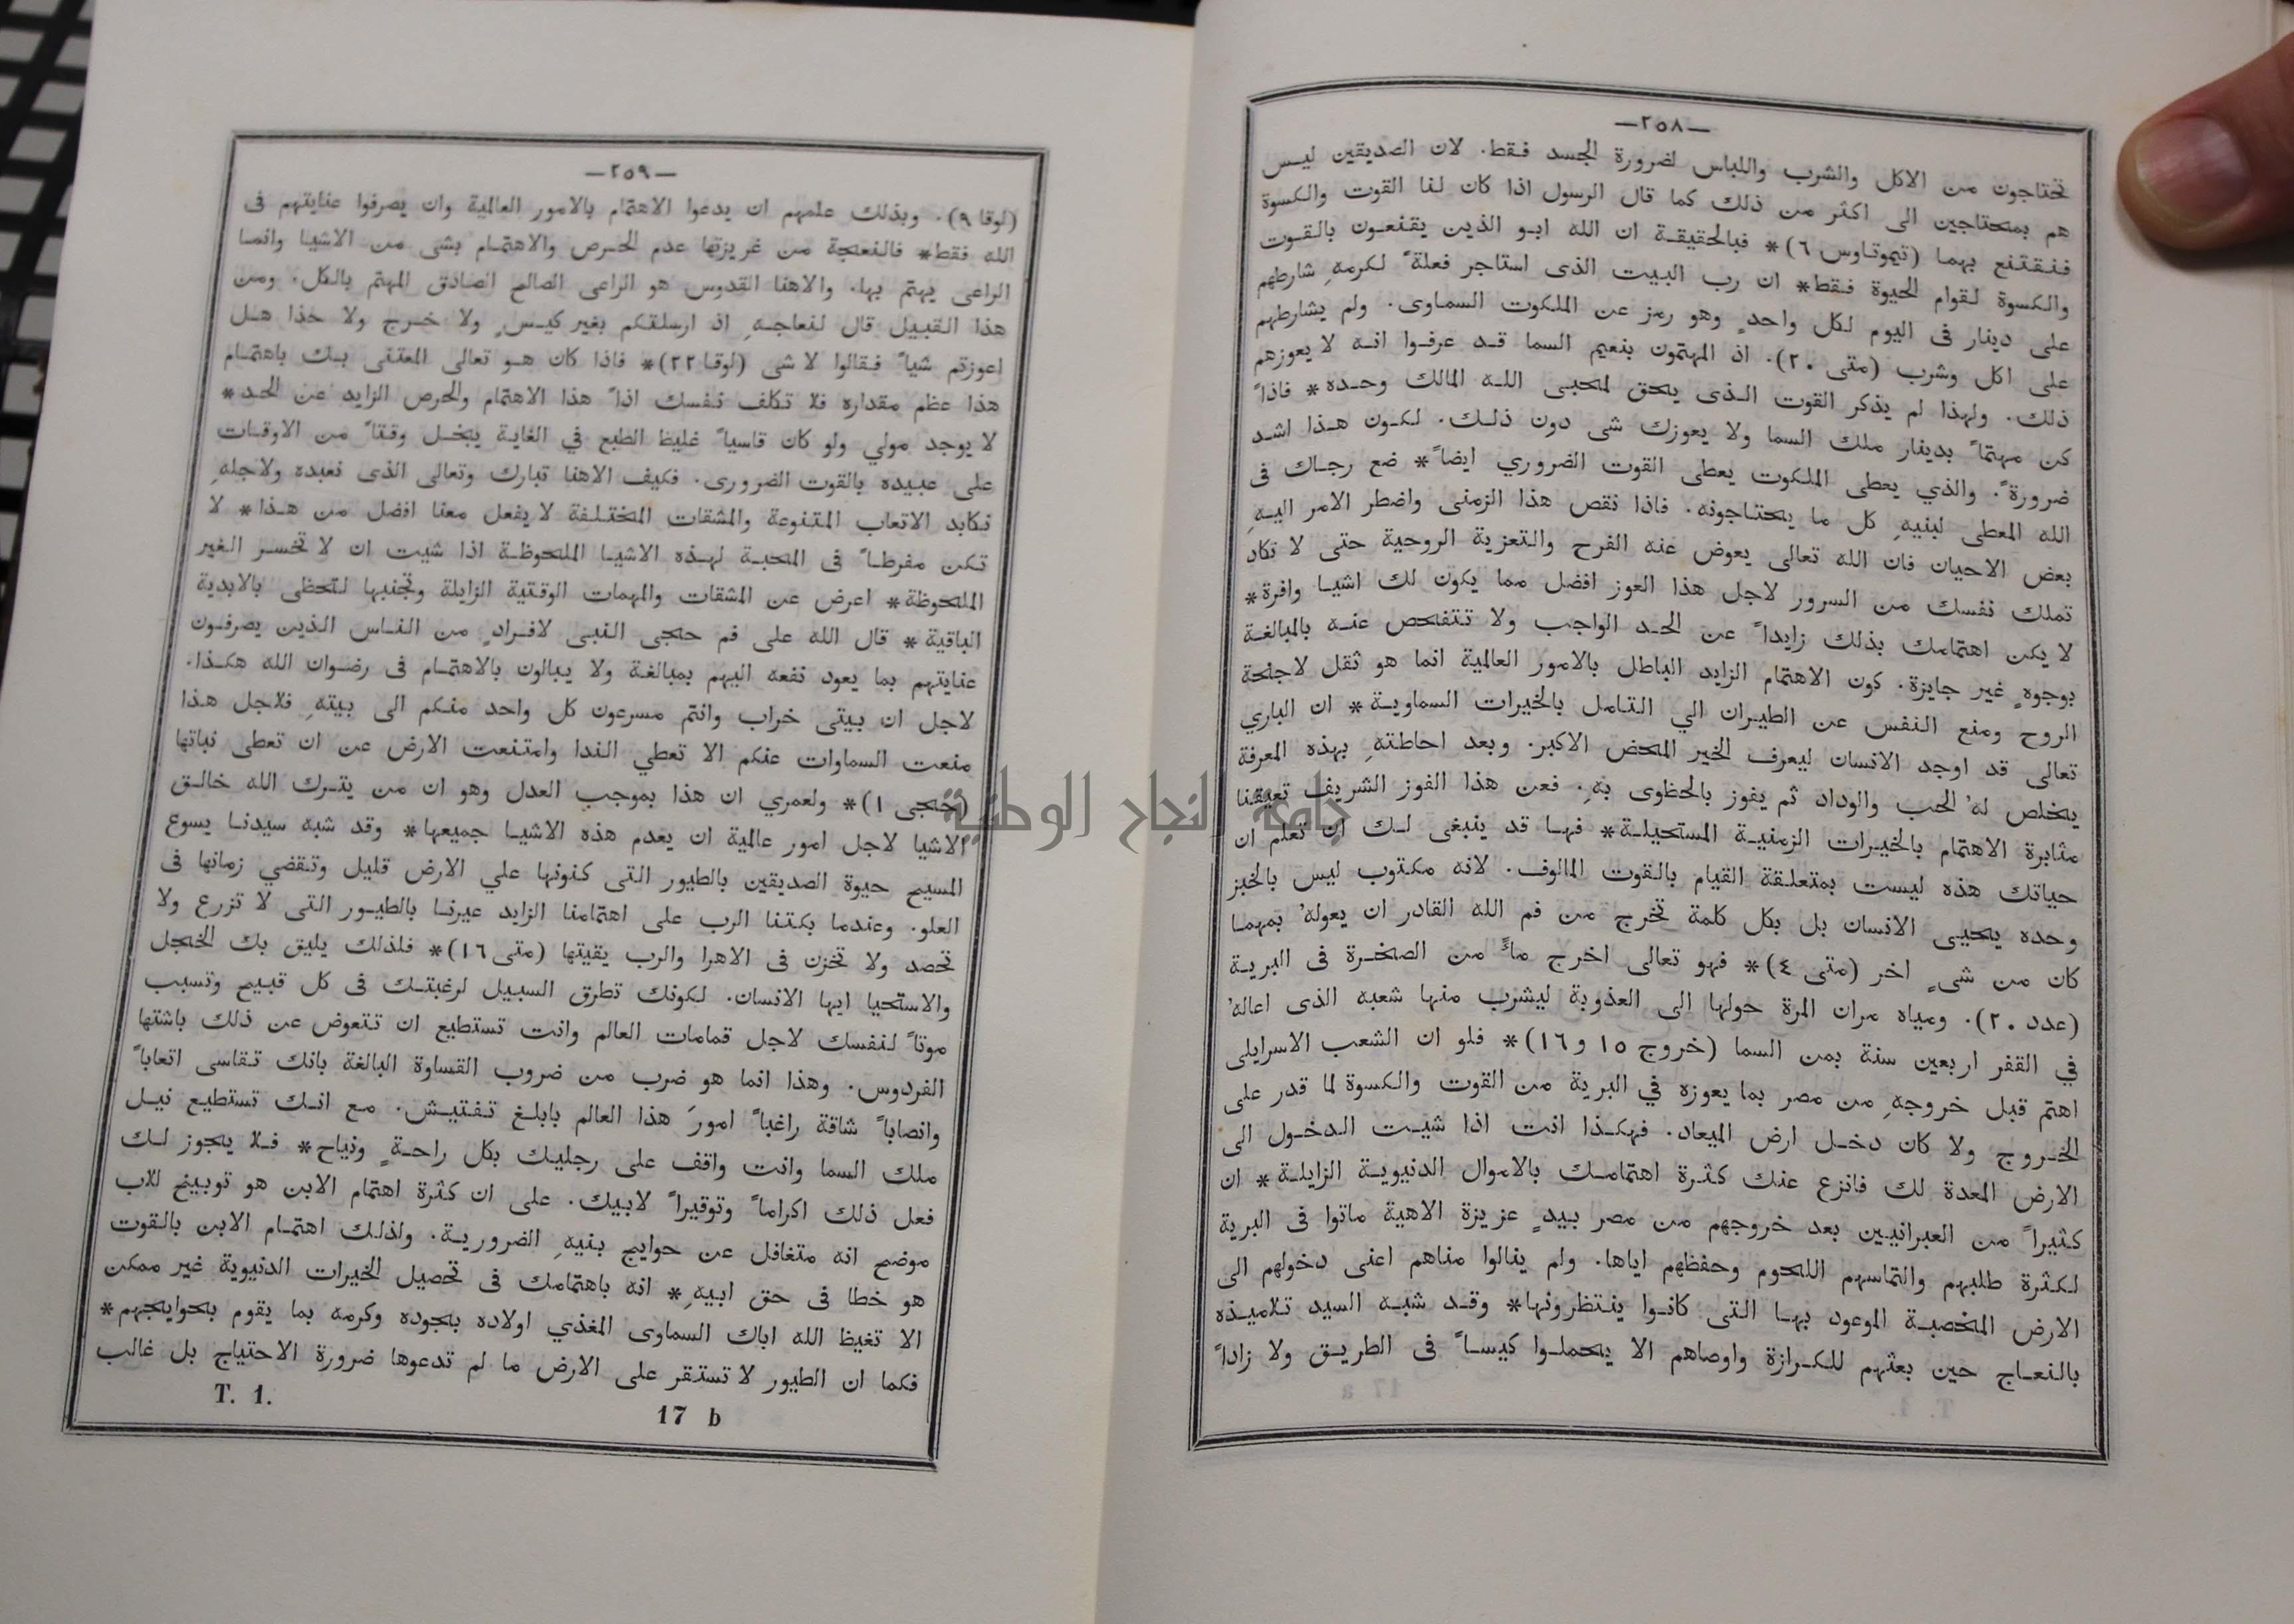 —٢٥٨—
تحتاجون من الاكل والشرب واللباس لضرورة الجسد فقط. لان الصديقين ليس
هم بمحتاجين الى اكثر من ذلك كما قال الرسول اذا كان لنا القوت والكسوة
فنقتنع بهما (تيموتاوس ٦)* فبالحقيقة ان الله ابو الذين يقنعون بالقوت
والكسوة لقوام الحيوة فقط* ان رب البيت الذى استاجر فعلةً لكرمهِ شارطهم
على دينار فى اليوم لكل واحدٍ وهو رمز عن الملكوت السماوى. ولم يشارطهم
على اكل وشرب (متى ٢٠). اذ المهتمون بنعيم السما قد عرفوا انه لا يعوزهم
ذلك. ولهذا لم يذكر القوت الذى يحق لمحبى الله المالك وحده* فاذاً
كن مهتماً بدينار ملك السما ولا يعوزك شى دون ذلك. لكون هذا اشد
ضرورةً. والذي يعطى الملكوت يعطى القوت الضروري ايضاً* ضع رجاك فى
الله المعطى لبنيهِ كل ما يحتاجونه. فاذا نقص هذا الزمنى واضطر الامر اليهِ
بعض الاحيان فان الله تعالى يعوض عنه الفرح والتعزية الروحية حتى لا تكاد
تملك نفسك من السرور لاجل هذا العوز افضل مما يكون لك اشيا وافرة*
لا يكن اهتمامك بذلك زايداً عن الحد الواجب ولا تتفحص عنه بالمبالغة
بوجوهٍ غير جايزة. كون الاهتمام الزايد الباطل بالامور العالمية انما هو ثقل لاجنحة
الروح ومنع النفس عن الطيران الي التامل بالخيرات السماوية* ان الباري
تعالى قد اوجد الانسان ليعرف الخير المحض الاكبر. وبعد احاطتهِ بهذه المعرفة
يخلص لهُ الحب والوداد ثم يفوز بالحظوى بهِ. فعن هذا الفوز الشريف تعيقنا
مثابرة الاهتمام بالخيرات الزمنية المستحيلة* فها قد ينبغى لك ان تعلم ان
حياتك هذه ليست بمتعلقة القيام بالقوت المالوف. لانه مكتوب ليس بالخبز
وحده يحيى الانسان بل بكل كلمة تخرج من فم الله القادر ان يعولهُ بمهما
كان من شىٍ اخر (متى ٤)* فهو تعالى اخرج ماً من الصخرة فى البرية
(عدد ٢٠). ومياه مران المرة حولها الى العذوبة ليشرب منها شعبه الذى اعالهُ
في القفر اربعين سنة بمن السما (خروج ١٥ و١٦)* فلو ان الشعب الاسرايلى
اهتم قبل خروجهِ من مصر بما يعوزه في البرية من القوت والكسوة لما قدر على
الخروج ولا كان دخل ارض الميعاد. فهكذا انت اذا شيت الدخول الى
الارض المعدة لك فانزع عنك كثرة اهتمامك بالاموال الدنيوية الزايلة* ان
كثيراً من العبرانيين بعد خروجهم من مصر بيدٍ عزيزة الاهية ماتوا فى البرية
لكثرة طلبهم والتماسهم اللحوم وحفظهم اياها. ولم ينالوا مناهم اعنى دخولهم الى
الارض المخصبة الموعود بها التى كانوا ينتظرونها* وقد شبه السيد تلاميذه
بالنعاج حين بعثهم للكرازة واوصاهم الا يحملوا كيساً فى الطريق ولا زاداً
—٢٥٩—
(لوقا ٩). وبذلك علمهم ان يدعوا الاهتمام بالامور العالمية وان يصرفوا عنايتهم فى
الله فقط* فالنعجة من غريزتها عدم الحرص والاهتمام بشى من الاشيا وانما
الراعى يهتم بها. والاهنا القدوس هو الراعى الصالح الصادق المهتم بالكل. ومن
هذا القبيل قال لنعاجهِ اذ ارسلتكم بغير كيسٍ ولا خرج ولا حذا هل
اعوزتم شياً فقالوا لا شى (لوقا ٢٢)* فاذا كان هو تعالى المعتنى بك باهتمام
هذا عظم مقداره فلا تكلف نفسك اذاً هذا الاهتمام والحرص الزايد عن الحد*
لا يوجد مولي ولو كان قاسياً غليظ الطبع في الغاية يبخل وقتاً من الاوقات
على عبيده بالقوت الضرورى. فكيف الاهنا تبارك وتعالى الذى نعبده ولاجلهِ
نكابد الاتعاب المتنوعة والمشقات المختلفة لا يفعل معنا افضل من هذا* لا
تكن مفرطاً فى المحبة لهذه الاشيا الملحوظة اذا شيت ان لا تخسر الغير
الملحوظة* اعرض عن المشقات والمهمات الوقتية الزايلة وتجنبها لتحظى بالابدية
الباقية* قال الله على فم حجى النبى لافرادٍ من الناس الذين يصرفون
عنايتهم بما يعود نفعه اليهم بمبالغة ولا يبالون بالاهتمام فى رضوان الله هكذا.
لاجل ان بيتى خراب وانتم مسرعون كل واحد منكم الى بيتهِ فلاجل هذا
منعت السماوات عنكم الا تعطي الندا وامتنعت الارض عن ان تعطى نباتها
(حجى ١)* ولعمري ان هذا بموجب العدل وهو ان من يترك الله خالق
الاشيا لاجل امور عالمية ان يعدم هذه الاشيا جميعها* وقد شبه سيدنا يسوع
المسيح حيوة الصديقين بالطيور التى كنونها علي الارض قليل وتقضي زمانها فى
العلو. وعندما بكتنا الرب على اهتمامنا الزايد عيرنا بالطيور التى لا تزرع ولا
تحصد ولا تخزن فى الاهرا والرب يقيتها (متى ١٦)* فلذلك يليق بك الخجل
والاستحيا ايها الانسان. لكونك تطرق السبيل لرغبتك فى كل قبيح وتسبب
موتاً لنفسك لاجل قمامات العالم وانت تستطيع ان تتعوض عن ذلك باشتها
الفردوس. وهذا انما هو ضرب من ضروب القساوة البالغة بانك تقاسى اتعاباً
وانصاباً شاقة راغباً امورَ هذا العالم بابلغ تفتيش. مع انك تستطيع نيل
ملك السما وانت واقف على رجليك بكل راحةٍ ونياح* فلا يجوز لك
فعل ذلك اكراماً وتوقيراً لابيك. على ان كثرة اهتمام الابن هو توبيخ للاب
موضح انه متغافل عن حوايج بنيهِ الضرورية. ولذلك اهتمام الابن بالقوت
هو خطا فى حق ابيهِ* انه باهتمامك فى تحصيل الخيرات الدنيوية غير ممكن
الا تغيظ الله اباك السماوى المغذي اولاده بجوده وكرمه بما يقوم بحوايجهم*
فكما ان الطيور لا تستقر على الارض ما لم تدعوها ضرورة الاحتياج بل غالب
T. 1.
17 b
جامعة النجاح الوطنية